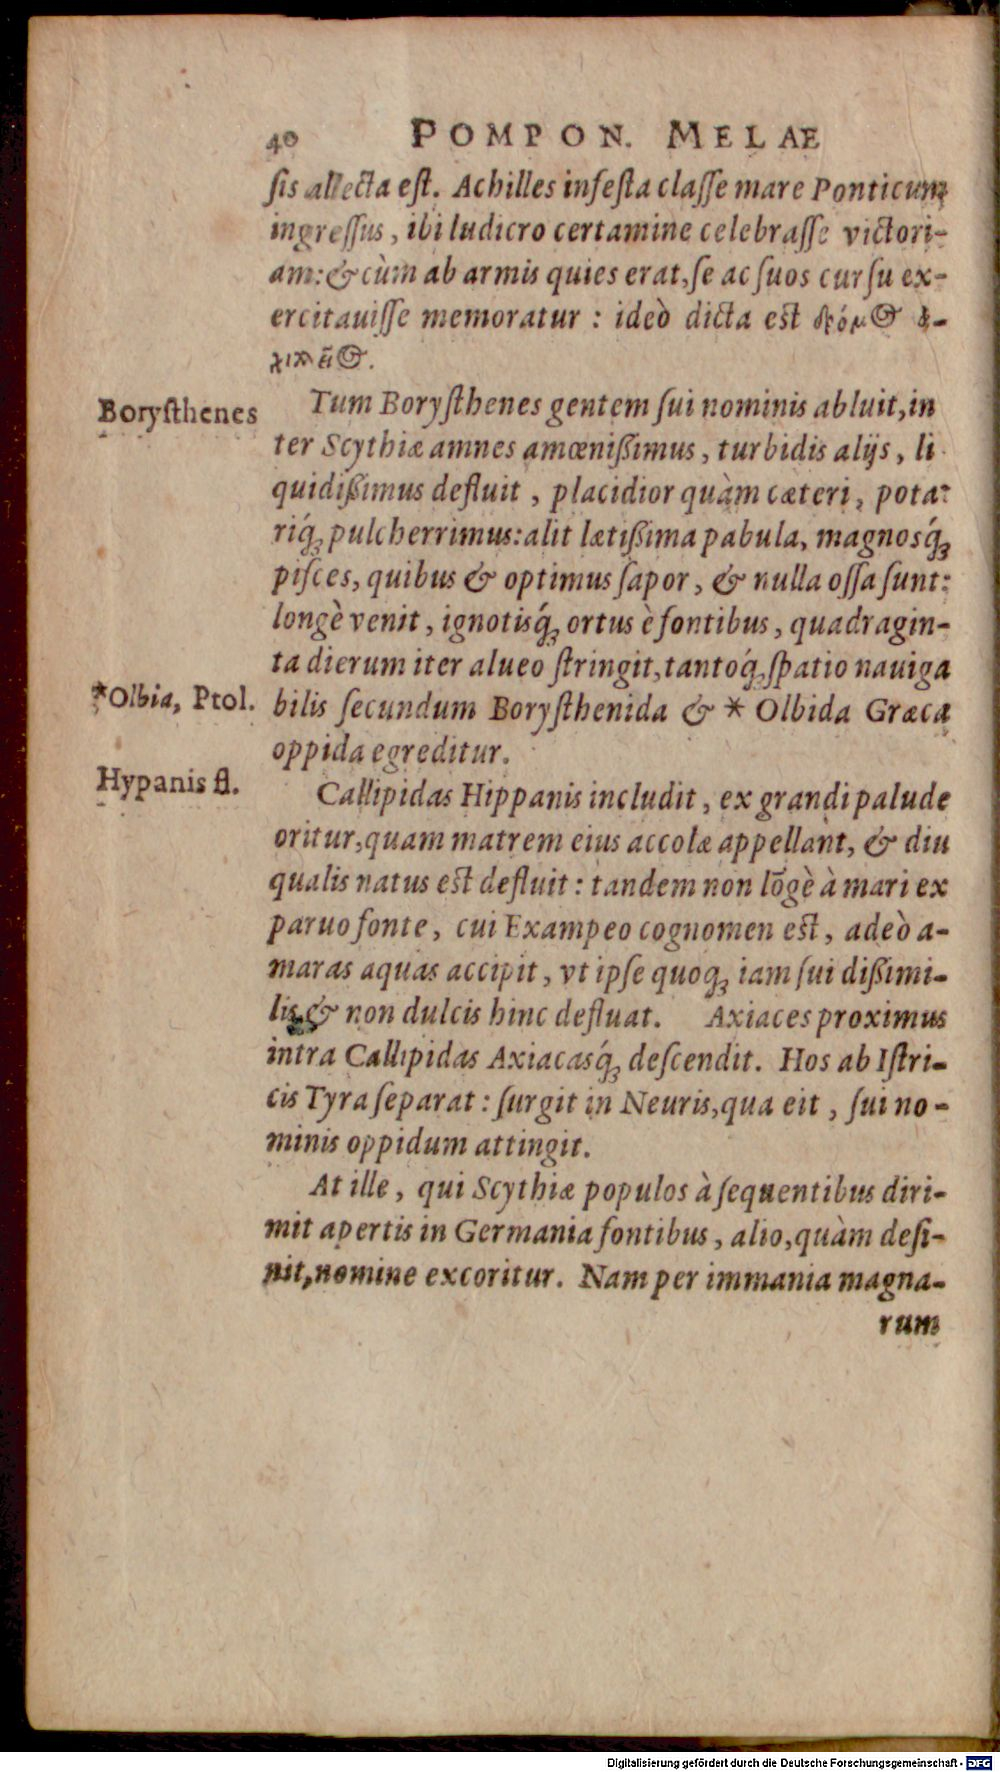 40 POMPON. MELAE
sis allecta est. Achilles infesta classe mare Ponticum
ingressus, ibi ludicro certamine celebrasse victori-
am: & cùm ab armis quies erat, se ac suos cursu ex-
ercitauisse memoratur : ideò dicta est
Borysthenes
Tum Borysthenes gentem sui nominis abluit, in
ter Scythiæ amnes amœnißimus, turbidis alijs, li
quidißimus defluit, placidior quàm cæteri, pota-
riq́ꝫ pulcherrimus: alit lætißima pabula, magnosq́ꝫ
pisces, quibus & optimus sapor, & nulla ossa sunt:
longè venit, ignotisq́ꝫ ortus è fontibus, quadragin-
ta dierum iter alueo stringit, tantoq́ꝫ spatio nauiga
*Olbia, Ptol.
bilis secundum Borysthenida & * Olbida Græca
oppida egreditur.
Hypanis fl.
Callipidas Hippanis includit, ex grandi palude
oritur, quam matrem eius accolæ appellant, & diu
qualis natus est defluit : tandem non lõgè à mari ex
paruo fonte, cui Exampeo cognomen est, adeò a-
maras aquas accipit, vt ipse quoqꝫ iam sui dißimi-
lis & non dulcis hinc defluat. Axiaces proximus
intra Callipidas Axiacasq́ꝫ descendit. Hos ab Istri-
cis Tyra separat : surgit in Neuris, qua eit, sui no-
minis oppidum attingit.
At ille, qui Scythiæ populos à sequentibus diri-
mit apertis in Germania fontibus, alio, quàm desi-
nit, nomine excoritur. Nam per immania magna-
rum
Digitalisierung gefördert durch die Deutsche Forschungsgemeinschaft - DFG